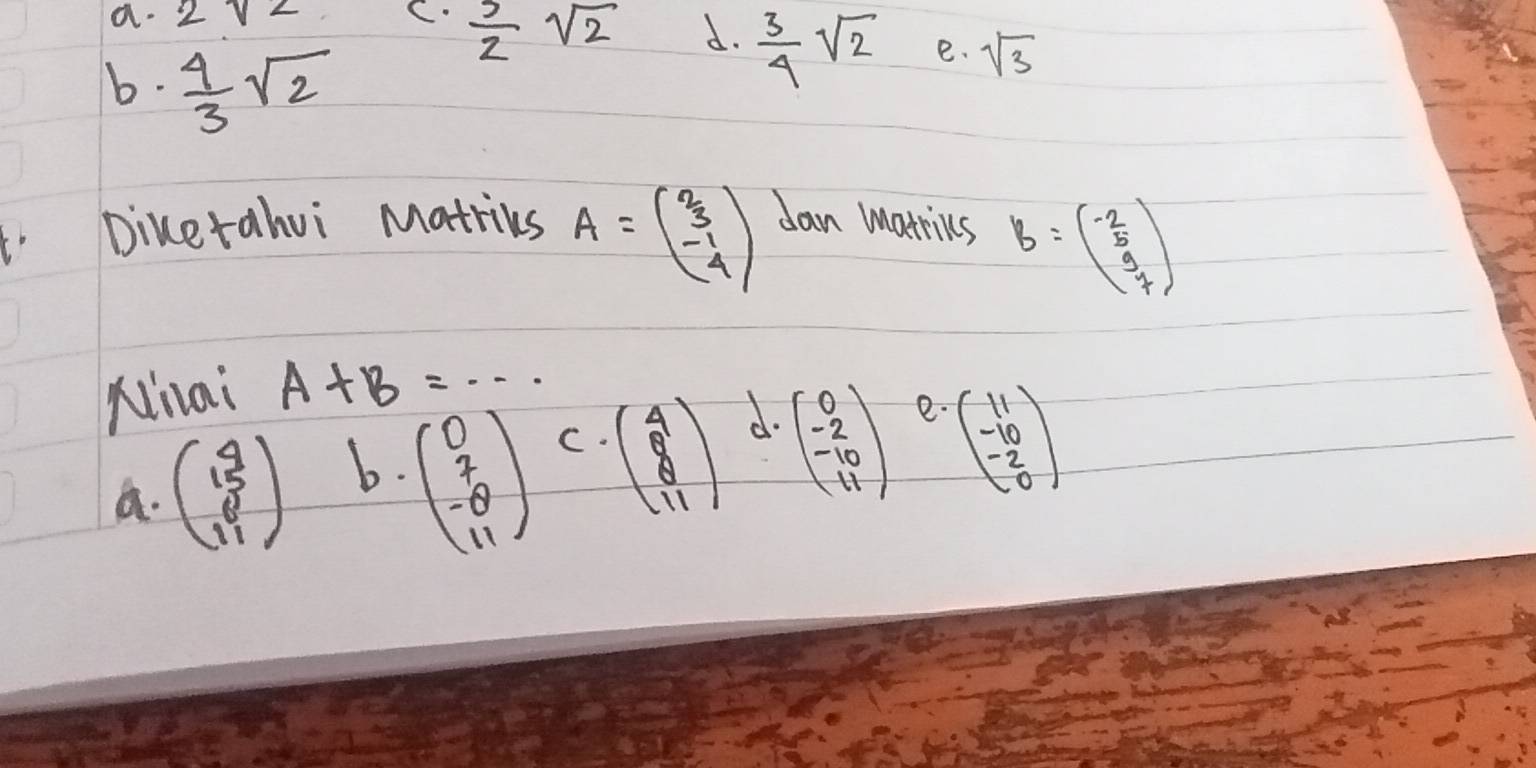 a. 2√2 c. 3/2 √2 d. 3/4 √2 e. √3
b. 4/3 √2
Diketahui Matriks A = (2 3 -1 4) dan matriks B = (-2 5 9 7)
Nilai A + B = ...
a. (4 15 8 11) b. (0 7 -8 11) c. (4 8 8 11) d. (0 -2 -10 11) e. (11 -10 -2 0)